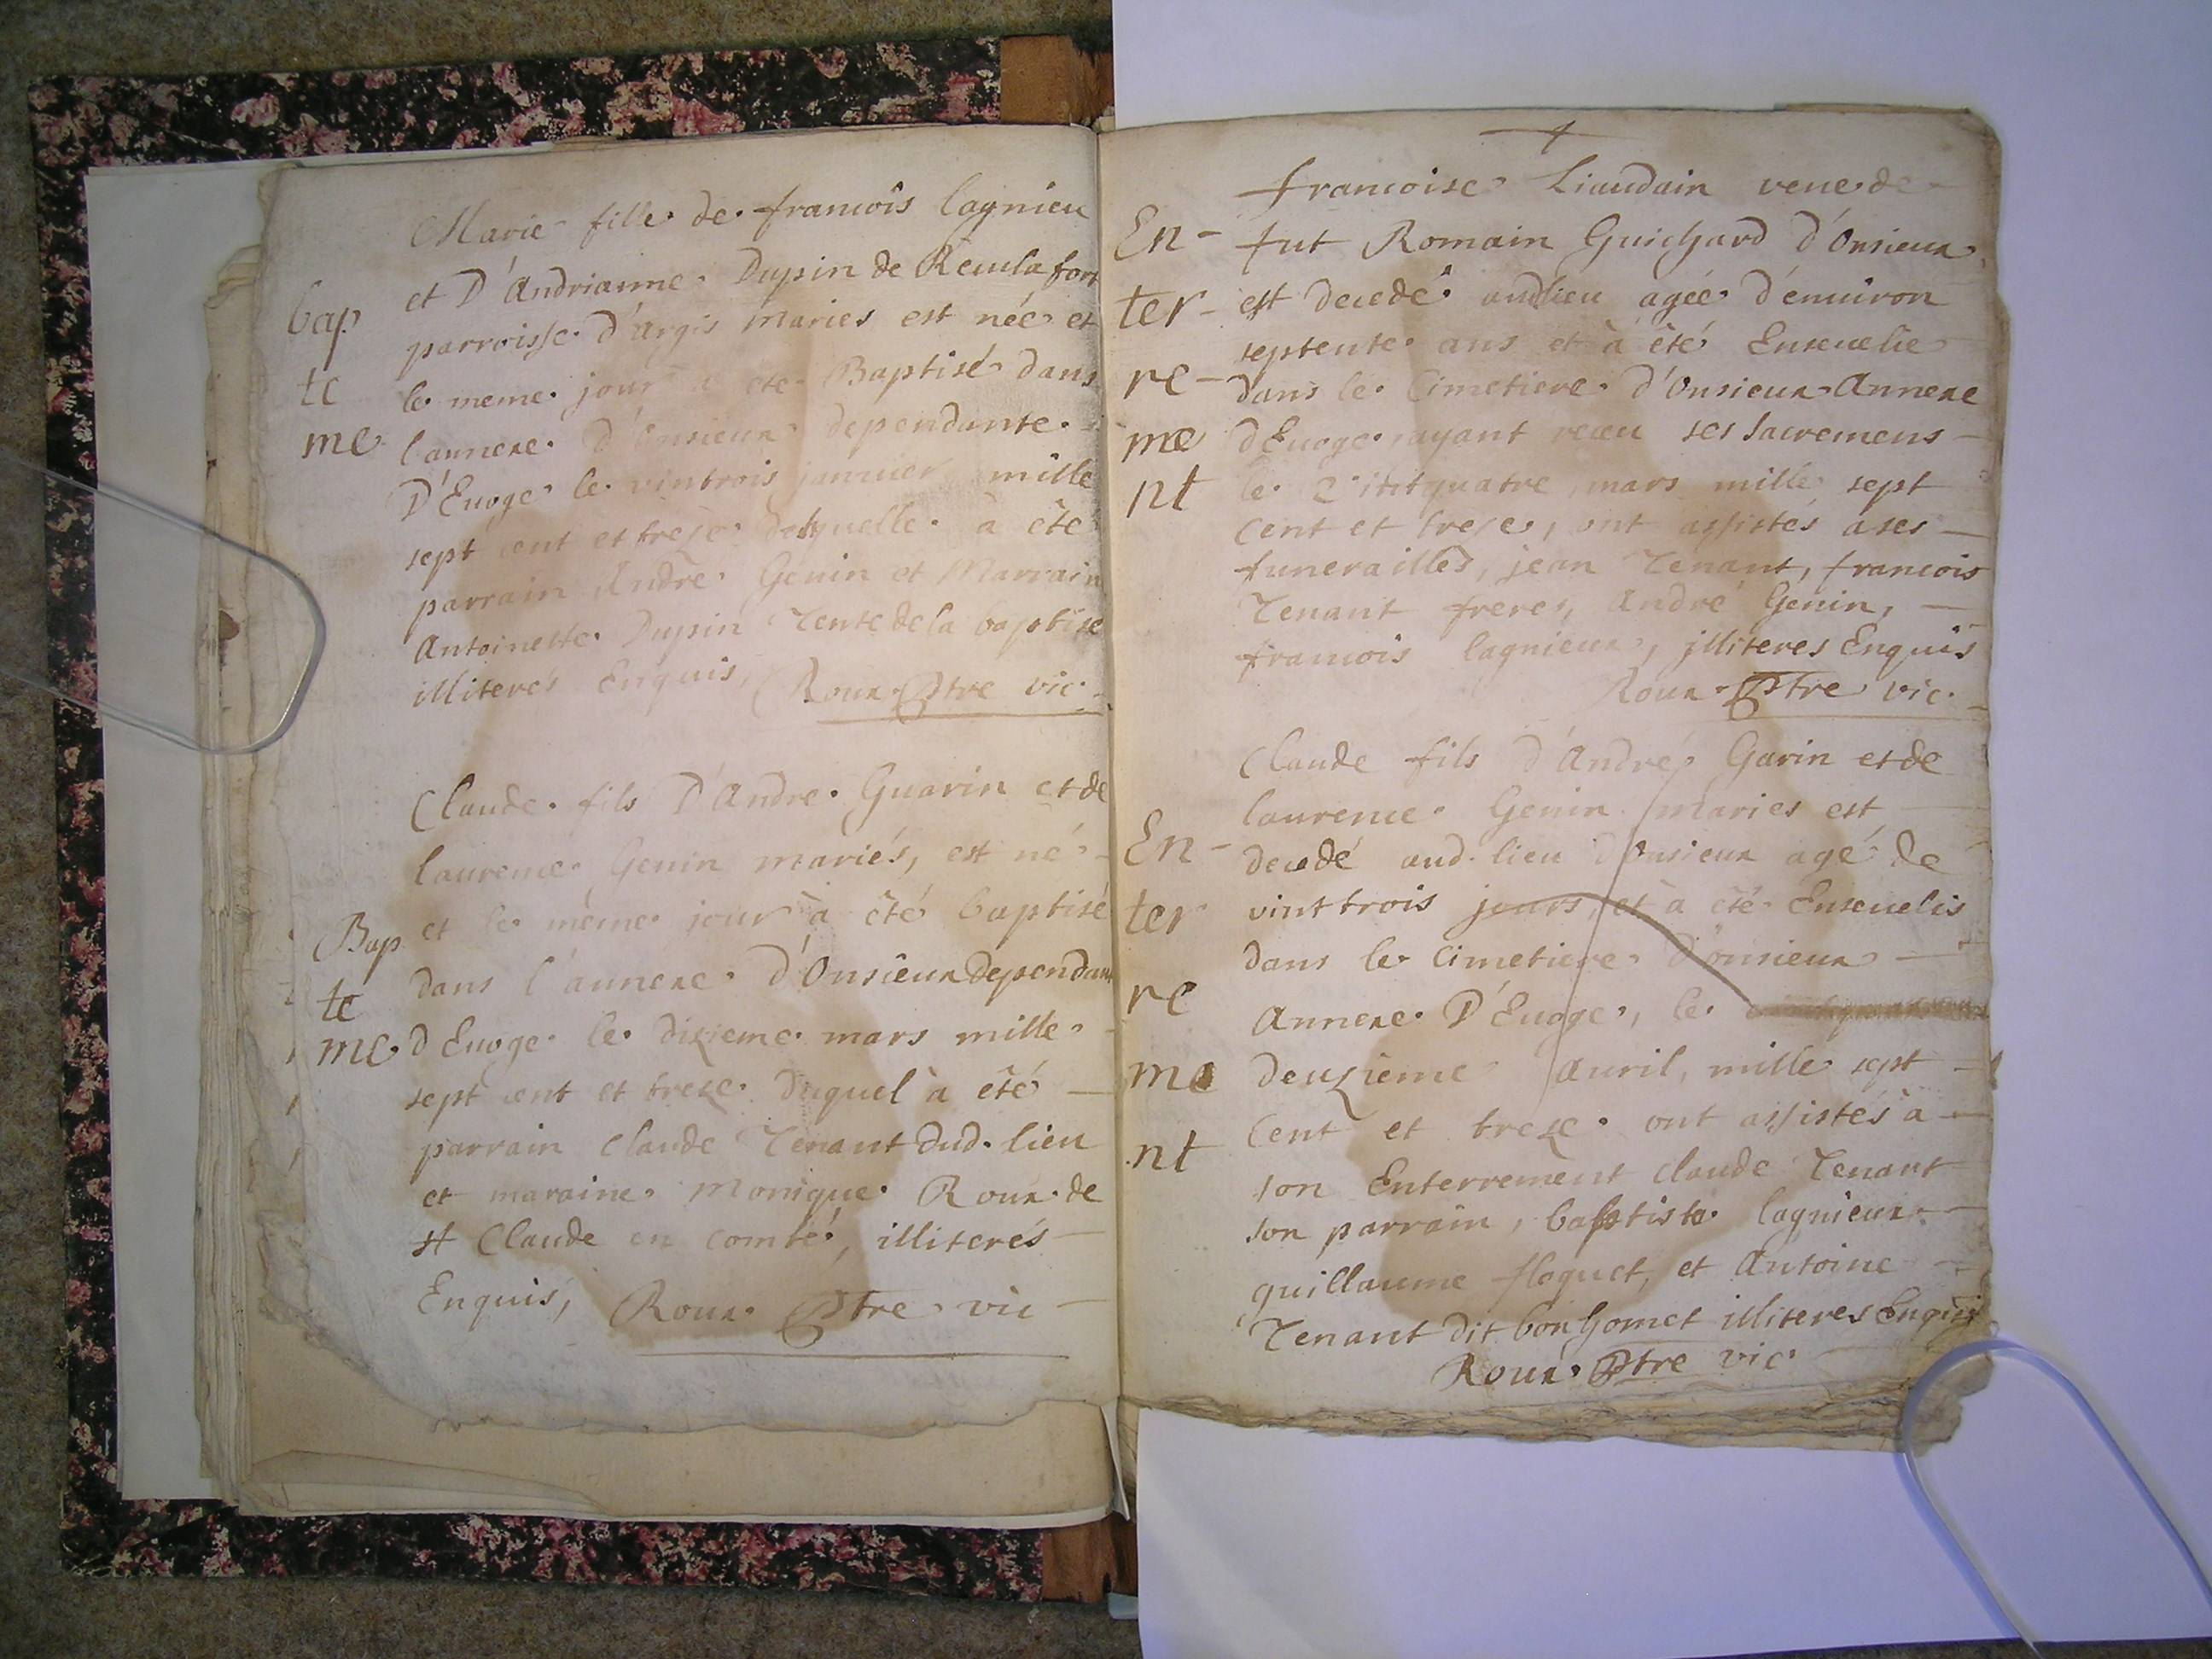 Marie fille de francois lagnieu
et D'Andrianne Dupin de Reculafort
parroisse d'Argis maries est née et
le meme jour a ete Baptisé dans
l'annexe d'Onsieux dependante
D'Euoge le vintrois januier mille
sept cent et treze delquelle à ête
parrain Andrè Genin et Marrain
Antoinette Dupin Tente de la baptise
illiterés Enquis, Roux Ptre vic.
bap
te
me
Claude fils D'Andre Guarin et de
laurence Genin mariés, est né
et le même jour à êté baptisé
dans l'annexe d'Onsieux dependan
d'Euoge le dixieme mars mille
sept cent et treze duquel à été
parrain Claude Tenant dud. lieu
et maraine Monique Roux de
st Claude en comté, illiterés
Enquis, Roux Ptre vic
Bap
te
me
francoise Liaudain veue de
fut Romain Guichard d'Onsieux
est decedé audlieu agéé d'enuiron
septente ans et à été Enseuelie
dans le Cimetiere d'Onsieux Annexe
d'Euoge, ayant receu ses sacremens
le mars mille sept
Cent et treze, ont assistés a ses
funerailles, jean Tenant, francois
Tenant freres, André Genin,
francois lagnieux, jlliteres Enquis
Roux Ptre vic.
En-
ter-
re-
me
nt
Claude fils d'André Garin et de
laurence Genin maries est
decedé aud. lieu d'Onsieux agé de
vint trois jours, et à été Enseuelis
dans le Cimetiere d'onsieux
Annexe D'Euoge, le
deuzieme Auril, mille sept
Cent et treze ont assistés a
son Enterrement Claude Tenant
son parrain, baptiste lagnieux
guillaume floquet, et Antoine
Tenant dit bonhomet illiteres Enquis
Roux Ptre vic
En-
ter
re
me
nt